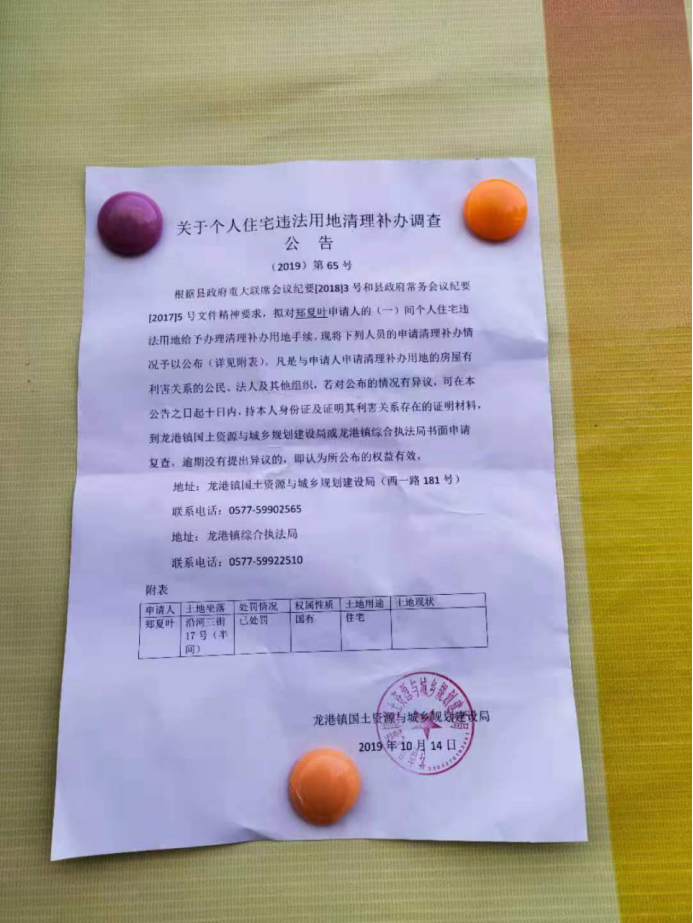 关于个人住宅违法用地清理补办调查
公 告
（2019）第 65 号
根据县政府重大联席会议纪要[2018]3 号和县政府常务会议纪要
[2017]5 号文件精神要求，拟对郑夏叶申请人的（一）间个人住宅违
法用地给予办理清理补办用地手续，现将下列人员的申请清理补办情
况予以公布（详见附表）。凡是与申请人申请清理补办用地的房屋有
利害关系的公民、法人及其他组织，若对公布的情况有异议，可在本
公告之日起十日内，持本人身份证及证明其利害关系存在的证明材料，
到龙港镇国土资源与城乡规划建设局或龙港镇综合执法局书面申请
复查，逾期没有提出异议的，即认为所公布的权益有效。
地址：龙港镇国土资源与城乡规划建设局（西一路 181 号）
联系电话：0577-59902565
地址：龙港镇综合执法局
联系电话：0577-59922510
附表
申请人 土地坐落 处罚情况 权属性质 土地用途 土地现状
郑夏叶 沿河三街 已处罚 国有 住宅
17 号（半
间）
龙港镇国土资源与城乡规划建设局
2019 年 10 月 14 日